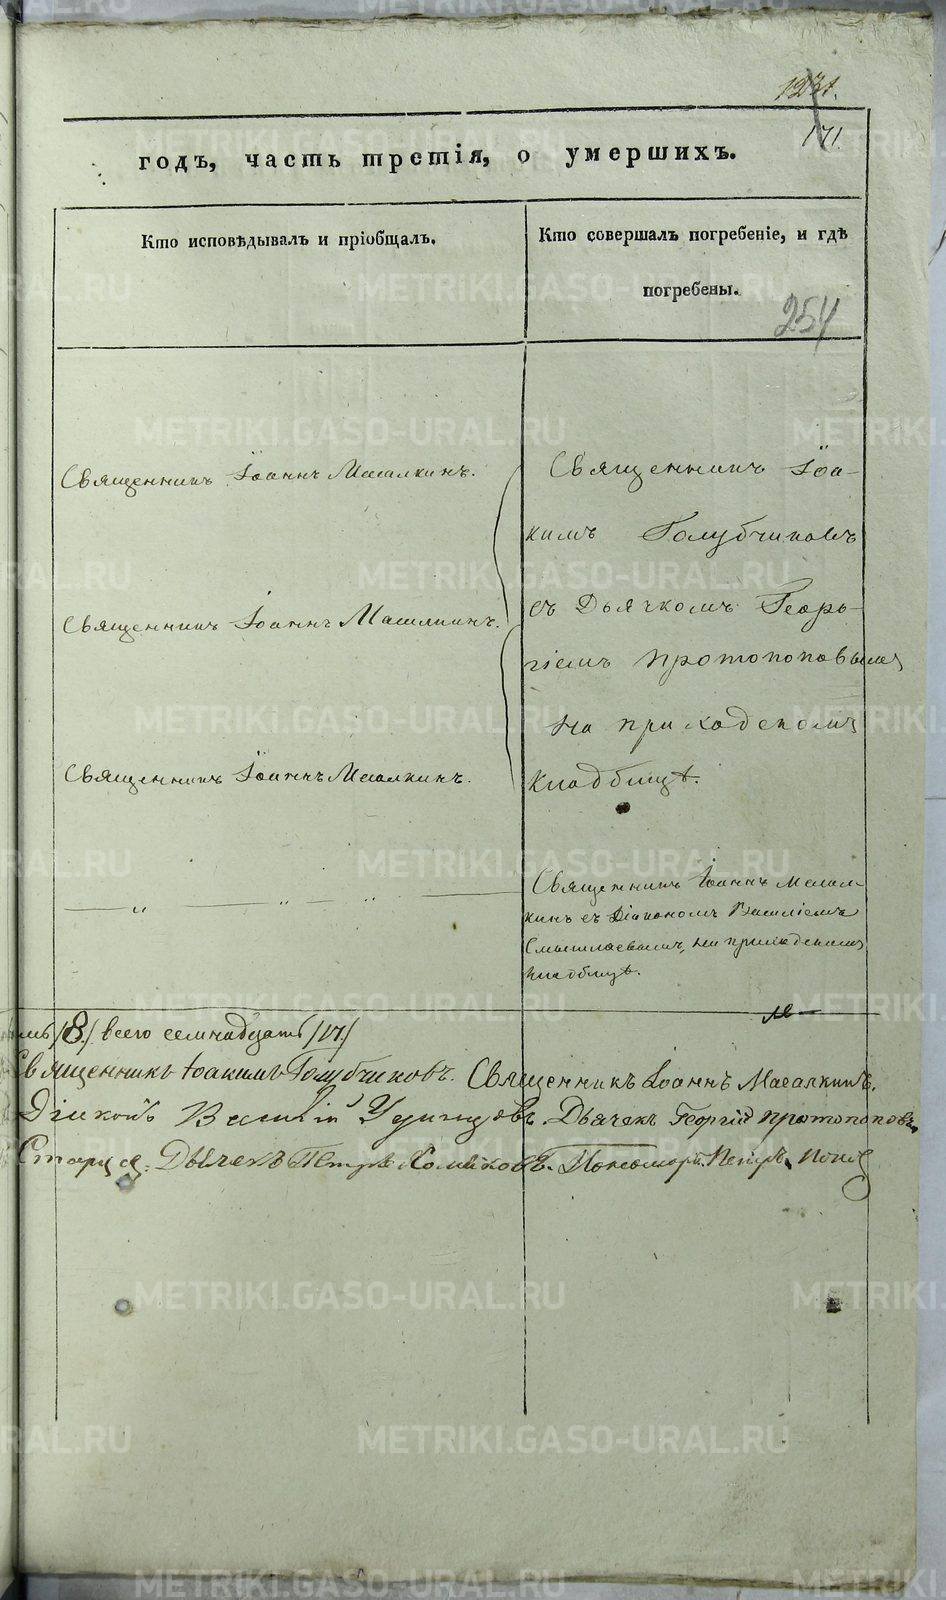 1231.
171.
годъ, часть третія, о умершихъ.
Кто исповѣдывалъ и пріобщалъ.
Кто совершалъ погребеніе, и гдѣ
погребены.
254
Священникъ Іоаннъ Масалкинъ.
Священникъ Іоа-
кимъ Голубчиковъ
съ Дьячкомъ Геор-
гіемъ Протопоповымъ
на приходскомъ
кладбищѣ.
Священникъ Іоаннъ Масалкинъ.
Священникъ Іоаннъ Масалкинъ.
Священникъ Іоаннъ Масал-
кинъ съ Діакономъ Василіемъ
на приходскомъ
кладбищѣ.
/8./ всего семнадцать /17./
Священникъ Іоакимъ Голубчиковъ. Священникъ Іоаннъ Масалкинъ.
Діаконъ Василій Дьячекъ Георгій Протопоповъ
Дьячекъ Петръ Пономарь Петръ Поповъ
METRIKI.GASO-URAL.RU